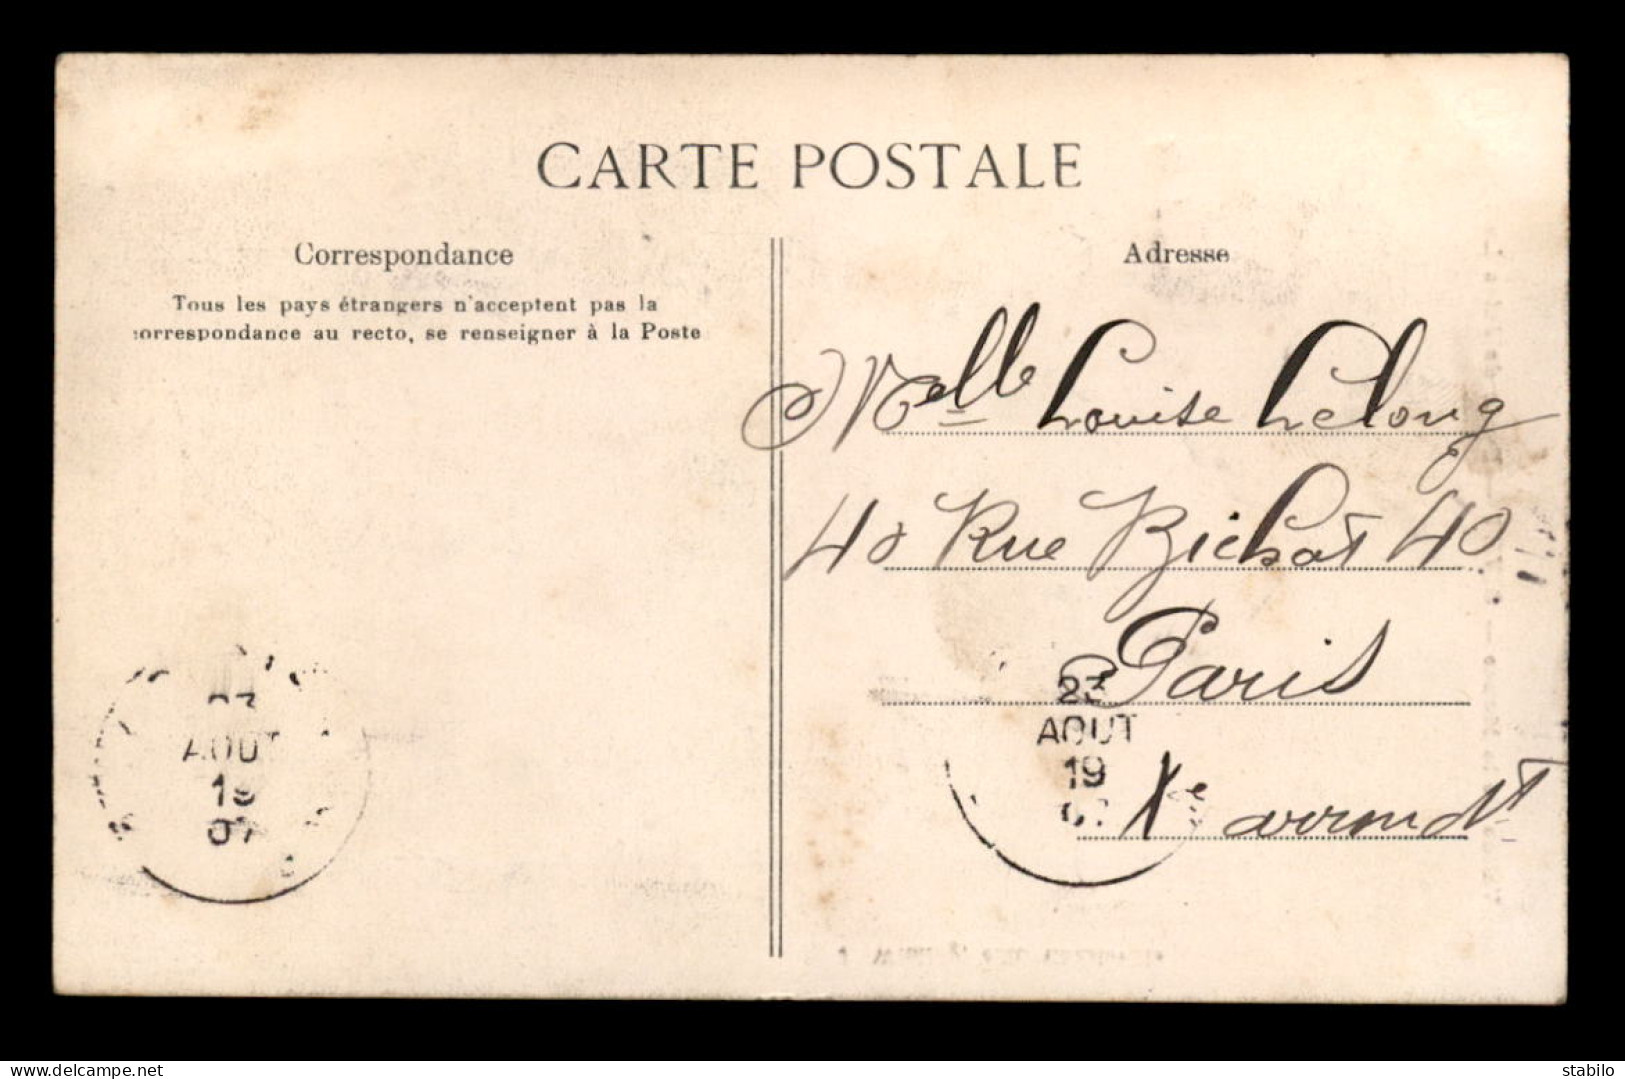 CARTE POSTALE
Correspondance
Tous les pays étrangers n'acceptent pas la
correspondance au recto, se renseigner à la Poste
Adresse
Melle Louise Lelong
40 Rue Bichat 40
Paris
Xe arrondt
23
AOUT
19
07
23
AOUT
19
delcampe.net
stabilo